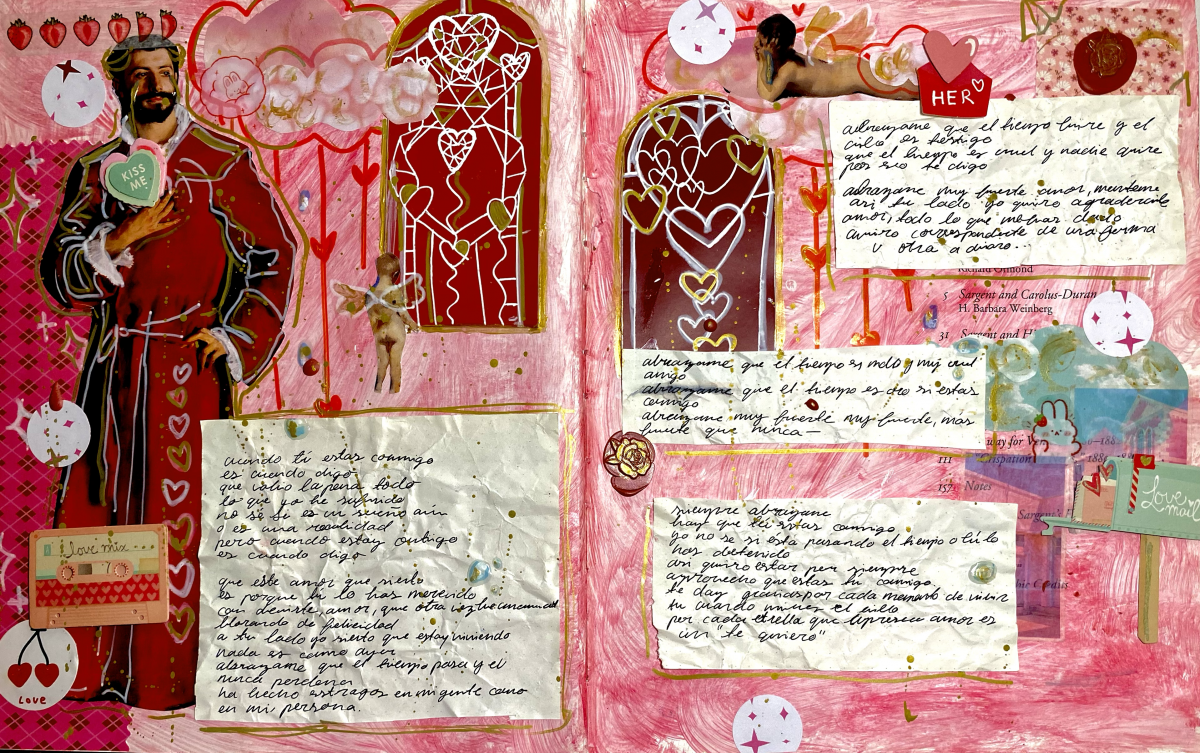 KISS
ME
cuando tú estas conmigo
es cuando digo
que valio la pena todo
lo que yo he sufrido
no se si es un sueño aun
o es una realidad
pero cuando estoy contigo
es cuando digo
que este amor que siento
es porque tu lo has merecido
con decirte, amor, que otra vez he amanecido
llorando de felicidad
a tu lado yo siento que estoy viviendo
nada es como ayer
abrazame que el tiempo pasa y el
nunca perdona
ha hecho estragos en mi gente como
en mi persona.
love mix
LOVE
HER
abrazame que el tiempo hiere y el
cielo es testigo
que el tiempo es cruel y nadie quiere
por eso te digo
abrazame muy fuerte amor, manteme
asi tu lado yo quiero agradecerte
amor, todo lo que me has dado
quiero corresponderte de una forma
u otra a diario...
Richard Ormond
5 Sargent and Carolus-Duran
H. Barbara Weinberg
31 Sargent and
abrazame que el tiempo es malo y muy cruel
amigo
abrazame que el tiempo es oro si estas
conmigo
abrazame muy fuerte muy fuerte, mas
fuerte que nunca—
way for
111
157 Notes
Sargent's
Love
mail
siempre abrazame
hoy que tú estas conmigo
yo no se si esta pasando el tiempo o tú lo
has detenido
asi quiero estar por siempre
aprovecho que estas tu conmigo
te doy gracias por cada momento de vivir
tu cuando mires el cielo
por cada estrella que aparezca amor es
un "te quiero"